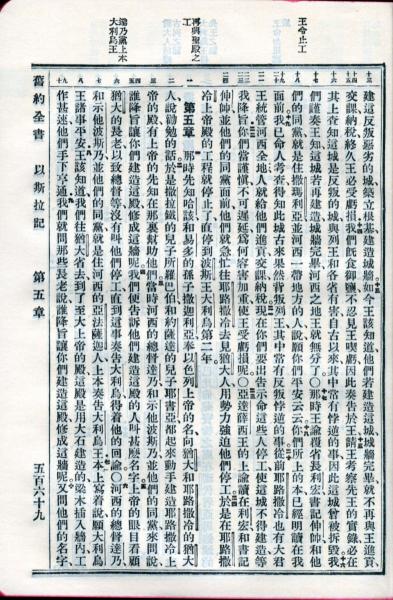 王令止工
再興聖殿之工
達乃黨上本大利烏王
建這反叛惡劣的城築立根基建造城牆如今王該知道他們若建造這城城牆完畢就不再與王進貢
交課納稅終久王必受虧損我們旣食御鹽不忍見王喫虧因此奏告於王請王考察先王的實錄必在
其中查知這城是反叛的城與列王和各省有害自古以來其中常有悖逆的事因此這城曾被拆毀我
們謹奏王知這城若再建造城牆完畢河西之地王就無分了○那時王諭覆省長利宏書記伸帥和他
們的同黨就是住撒瑪利亞並河西一帶地方的人說願你們平安云云你們所上的本已經明讀在我
面前我已命人考查得知此城古來果然背叛列王其中常有反叛悖逆的事從前耶路撒冷也有大君
王統管河西全地人就給他們進貢交課納稅現在你們要出告示命這些人停工使這城不得建造等
我降旨你們當謹愼不可遲延爲何容害加重使王受虧損呢○亞達薛西王的上諭讀在利宏和書記
伸帥並他們的同黨面前他們就急忙往耶路撒冷去見猶大人用勢力強迫他們停工於是在耶路撒
冷上帝殿的工程就停止了直停到波斯王大利烏第二年
第五章 那時先知哈該和易多的孫子撒迦利亞奉以色列上帝的名向猶大和耶路撒冷的猶大
人說勸勉的話於是撒拉鐵的兒子所羅巴伯和約薩達的兒子耶書亞都起來動手建造耶路撒冷上
帝的殿有上帝的先知在那裏幫助他們當時河西的總督達乃和示他波斯乃並他們的同黨來問說
誰降旨讓你們建造這殿修成這牆呢我們便告訴他們建造這殿的人叫甚麼名字上帝的眼目看顧
猶大的長老以致總督等沒有叫他們停工直到這事奏告大利烏得着他的回諭○河西的總督達乃
和示他波斯乃並他們的同黨就是住河西的亞法薩迦人上本奏告大利烏王本上寫着說願大利烏
王諸事平安王該知道我們往猶大省去到了至大上帝的殿這殿是用大石建造的梁木插入牆內工
作甚速他們手下亨通我們就問那些長老說誰降旨讓你們建造這殿修成這牆呢又問他們的名字
舊約全書 以斯拉記 第五章 五百六十九